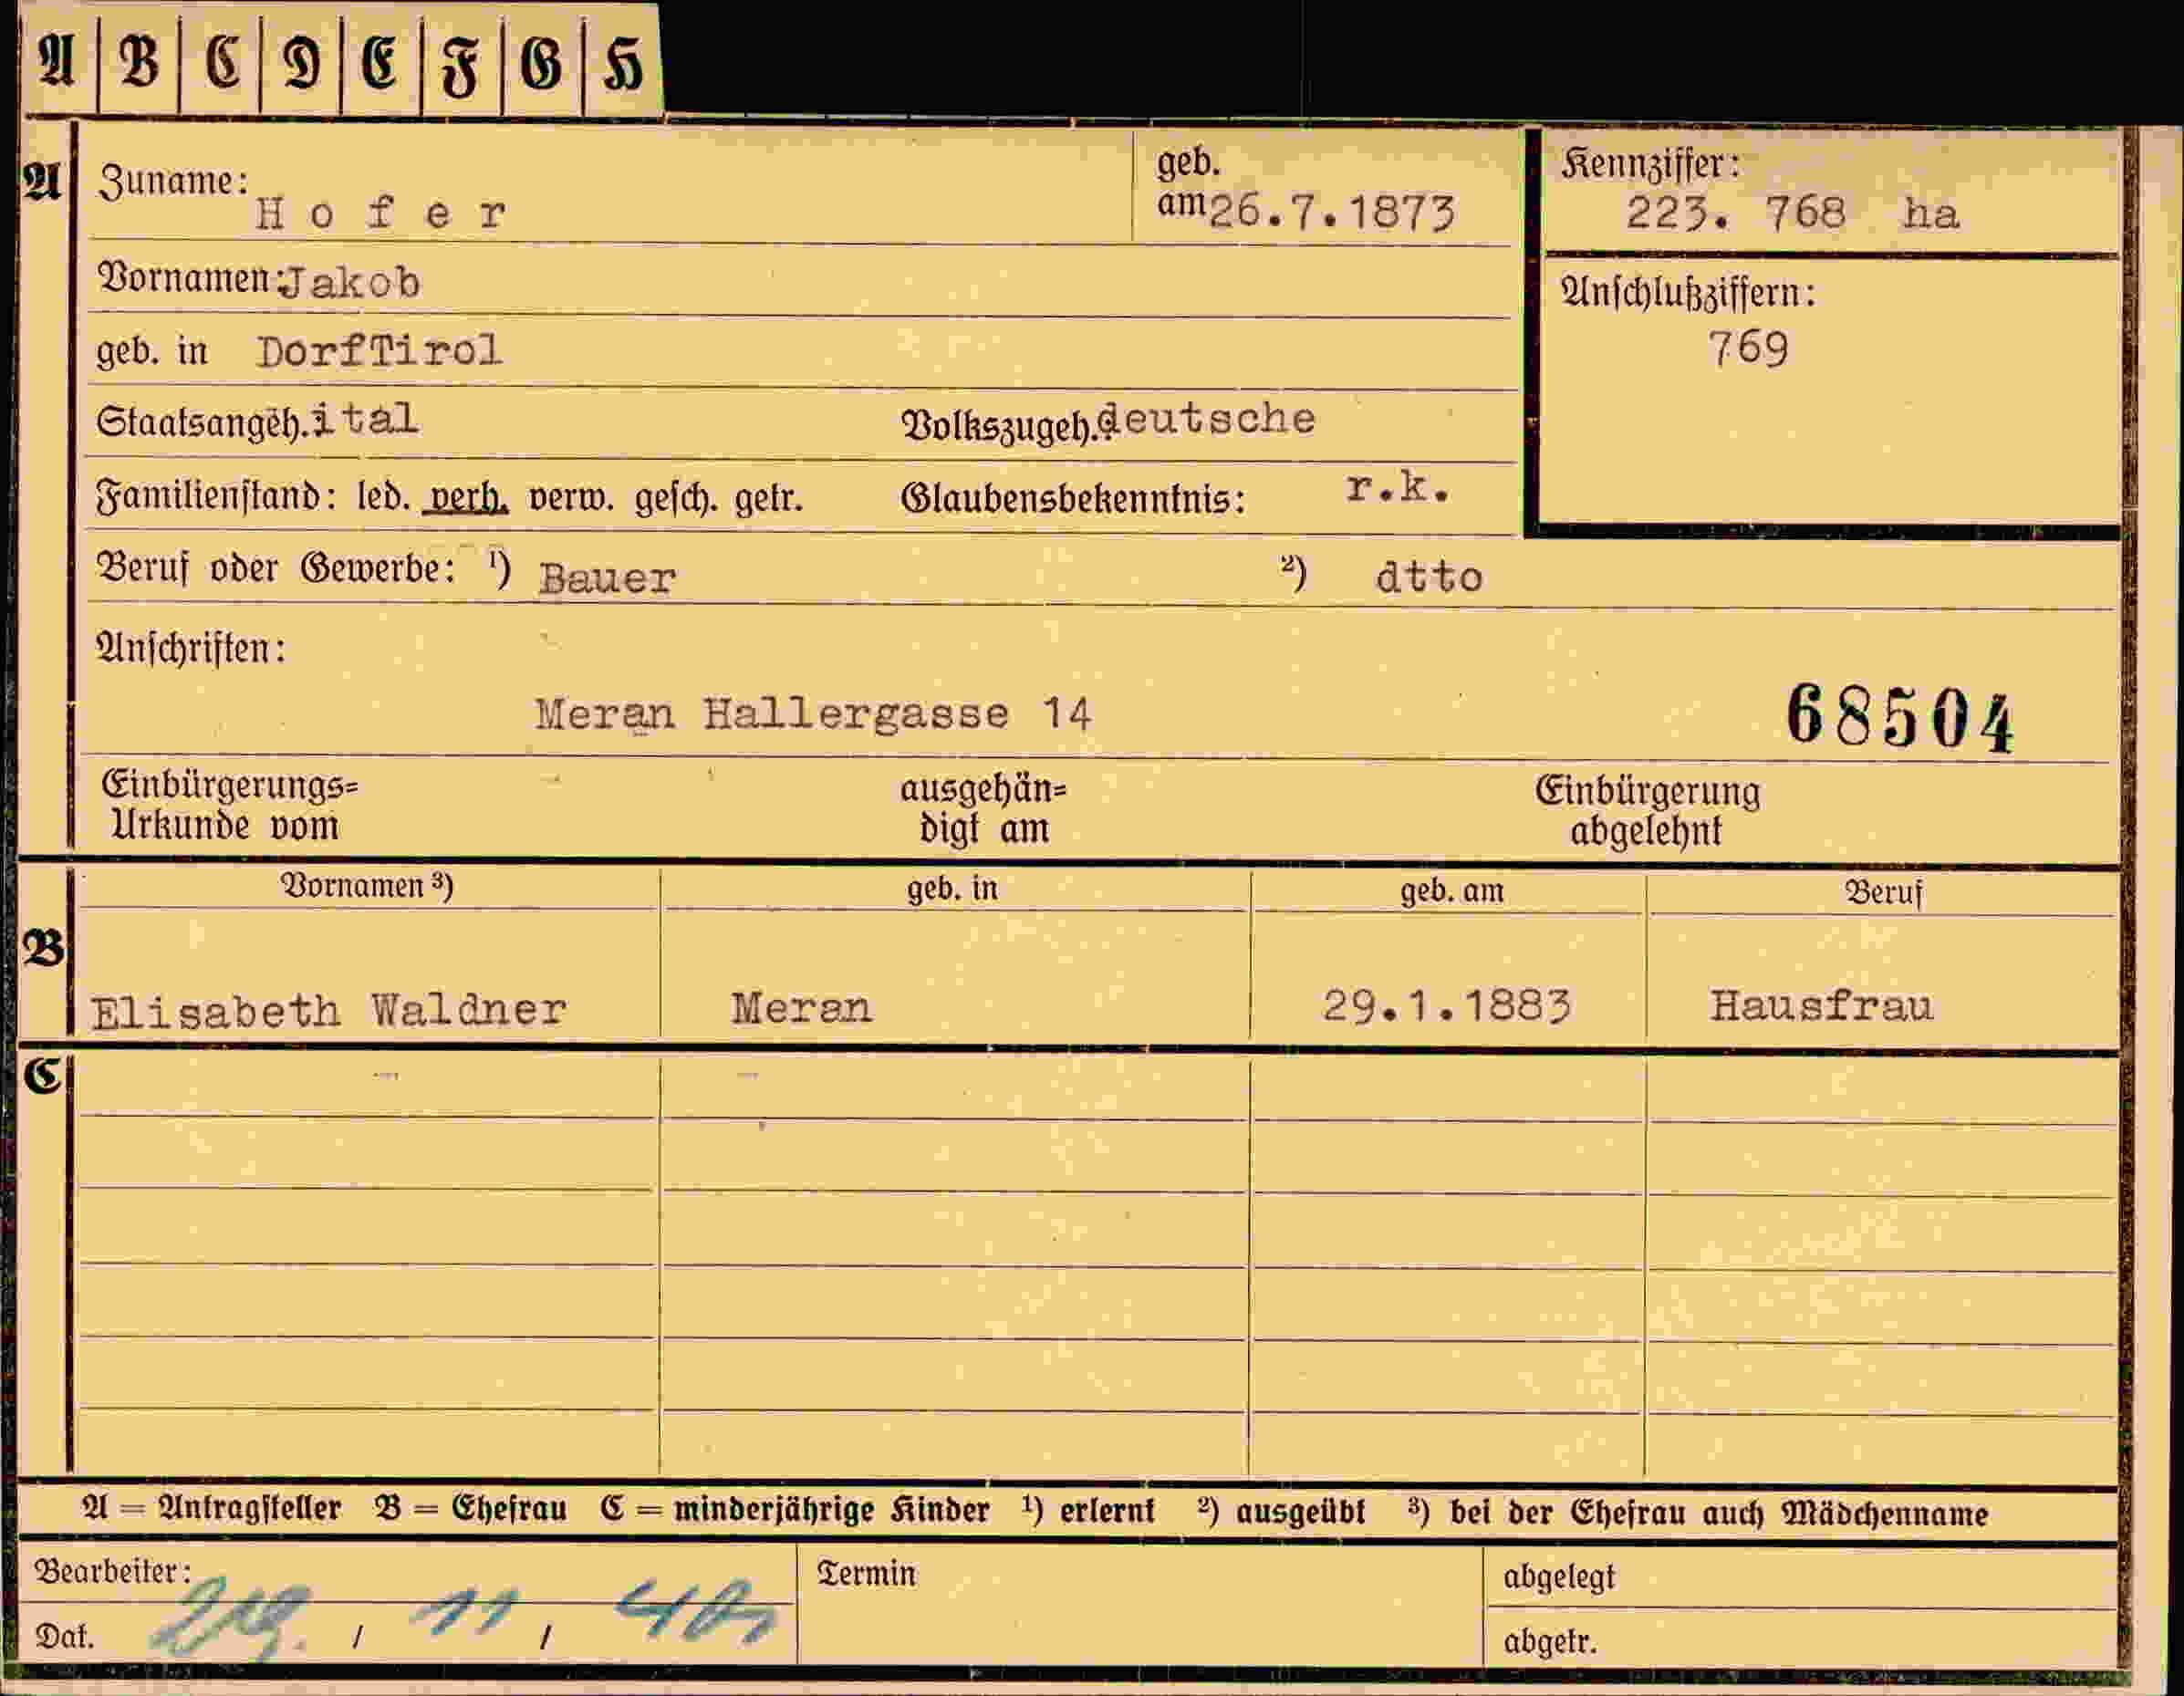 A B C D E F G H
A
Zuname: Hofer
geb. am 26.7.1873
Kennziffer:
223. 768 ha
Vornamen: Jakob
Anschlußziffern:
769
geb. in DorfTirol
Staatsangeh. ital Volkszugeh. deutsche
Familienstand: led. verh. verw. gesch. getr. Glaubensbekenntnis: r.k.
Beruf oder Gewerbe: ¹) Bauer ²) dtto
Anschriften:
Meran Hallergasse 14
68504
Einbürgerungs= ausgehän= Einbürgerung
Urkunde vom digt am abgelehnt
Vornamen ³) geb. in geb. am Beruf
B
Elisabeth Waldner Meran 29.1.1883 Hausfrau
C
A = Antragsteller B = Ehefrau C = minderjährige Kinder ¹) erlernt ²) ausgeübt ³) bei der Ehefrau auch Mädchenname
Bearbeiter: Termin abgelegt
Dat. / 11 / abgetr.